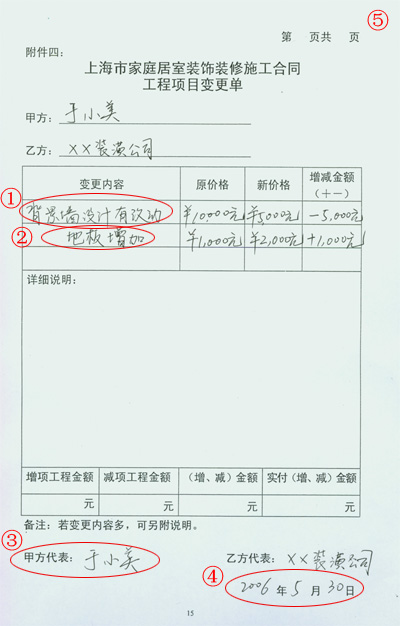 第 页共 页 ⑤
附件四:
上海市家庭居室装饰装修施工合同
工程项目变更单
甲方: 于小美
乙方: ××装潢公司
变更内容 原价格 新价格 增减金额
(+-)
① 背景墙设计有改动 ¥10,000元 ¥5000元 -5,000元
② 地板增加 ¥1,000元 ¥2,000元 +1,000元
详细说明:
增项工程金额 减项工程金额 (增、减)金额 实付(增、减)金额
元 元 元 元
备注:若变更内容多,可另附说明。
③ 甲方代表: 于小美 乙方代表: ××装潢公司
④ 2006年5月30日
15